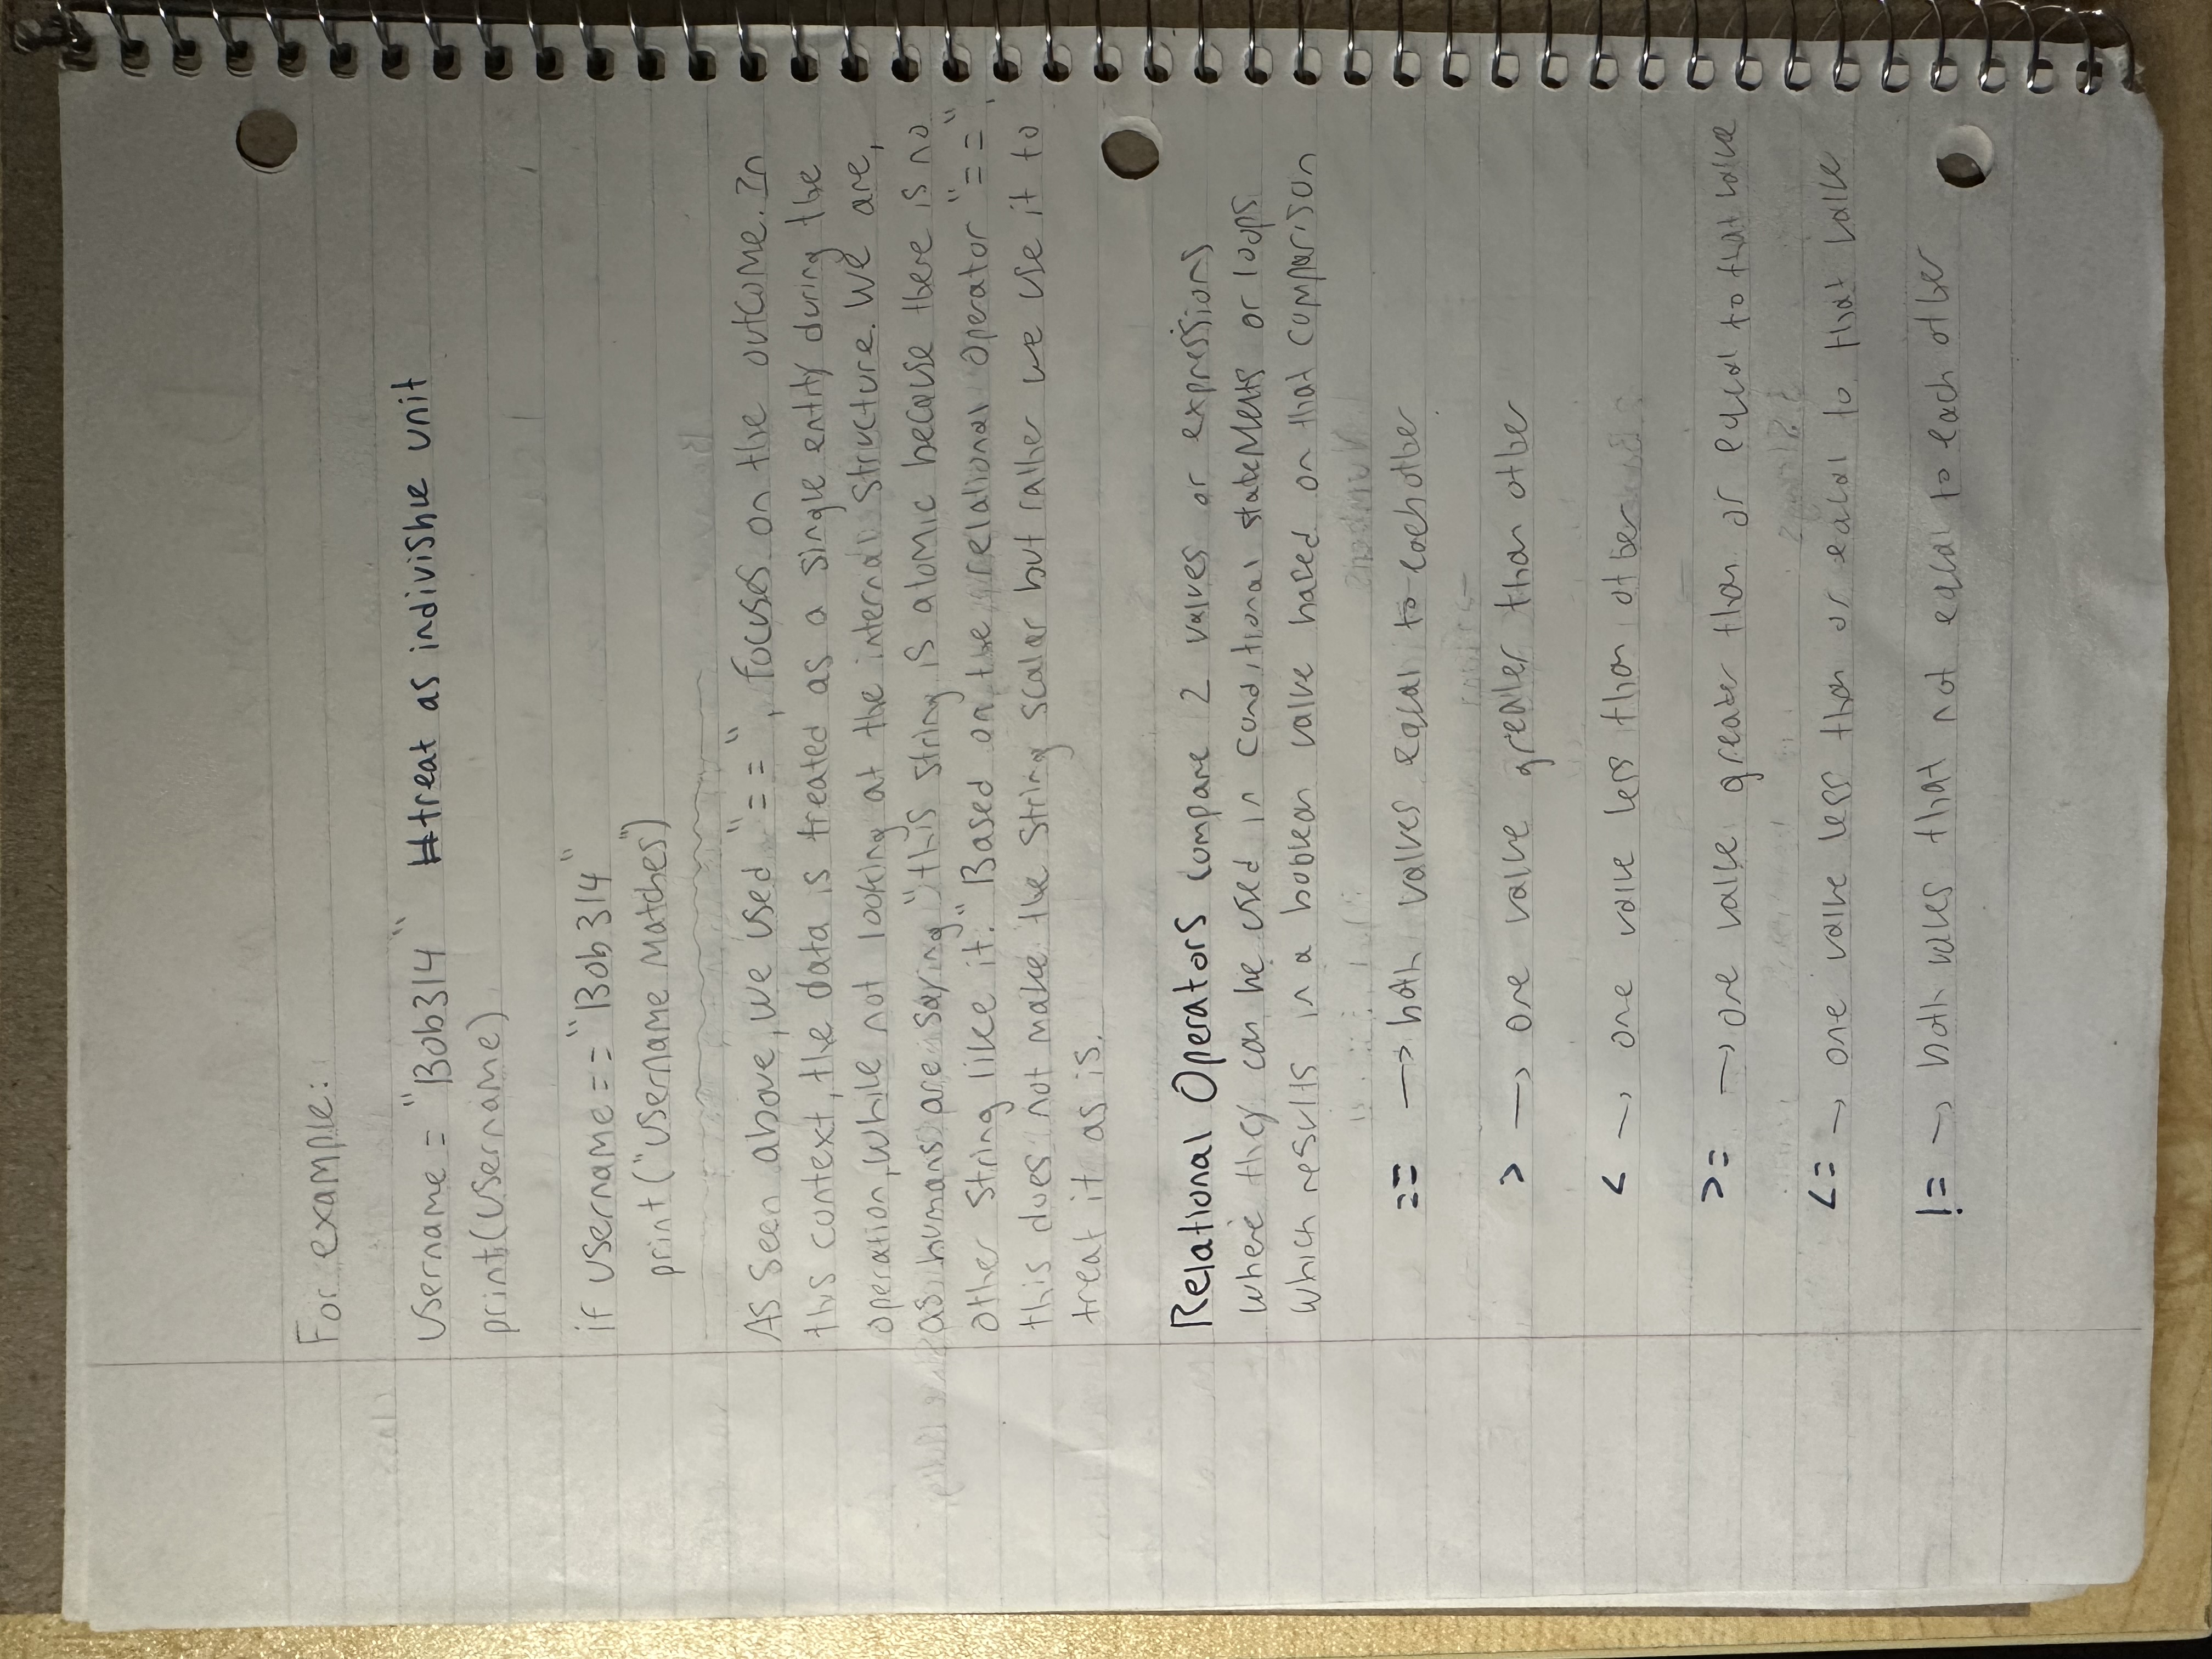 For example:
Username = "Bob314" #treat as indivisble unit
print(Username)
if Username == "Bob314"
print("Username Matches")
As seen above, we used "==", focuses on the outcome. In
this context, the data is treated as a single entity during the
operation, while not looking at the internal structure. We are,
as humans are saying "this string is atomic because there is no
other string like it." Based on the relational operator "==",
this does not make the string scalar but rather we use it to
treat it as is.
Relational Operators compare 2 values or expressions
where they can be used in conditional statements or loops
which results in a boolean value based on that comparison
== → both values equal to each other
> → one value greater than other
< → one value less than other
>= → one value greater than or equal to that value
<= → one value less than or equal to that value
!= → both values that not equal to each other